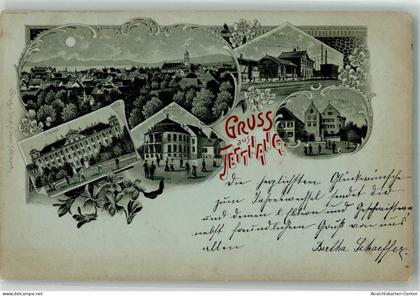 Gruss
aus
Tettnang
Die herzlichsten Glückwünsche
zum Jahreswechsel sendet dir
und deinen l. Eltern und Geschwister
nebst freundlichem Gruß von uns
allen
Bertha Schaeffer
www.ansichtskarten-center.de
Ansichtskarten-Center